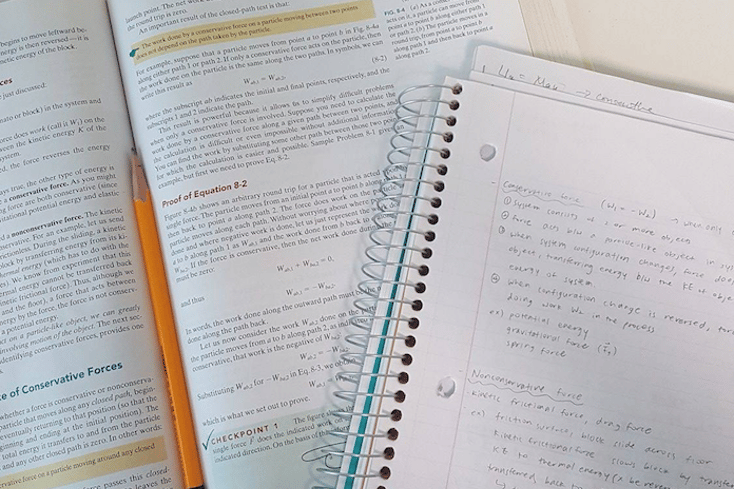 begins to move leftward be-
versy is then reversed—it is
netic energy of the block.
ces
just discussed.
mato or block) in the system and
orce does work (call it W₁) on the
tween the kinetic energy K of the
ystem.
d, the force reverses the energy
ays true, the other type of energy is
a conservative force. As you might
force are both conservative (since
itational potential energy and elastic
d a nonconservative force. The kinetic
ervative. For an example, let us send
frictionless. During the sliding, a kinetic
block by transferring energy from its ki-
rmal energy (which has to do with the
les). We know from experiment that this
nal energy cannot be transferred back
kinetic frictional force). Thus, although we
and the floor), a force that acts between
energy by the force, the force is not conserv-
potential energy.
ct on a particle-like object, we can greatly
involving motion of the object. The next sec-
identifying conservative forces, provides one
ce of Conservative Forces
whether a force is conservative or nonconserva-
particle that moves along any closed path, begin-
eventually returning to that position (so that the
beginning and ending at the initial position). The
total energy it transfers to and from the particle
and any other closed path is zero. In other words:
ervative force on a particle moving around any closed
force passes this closed-
leaves the
launch point. The net work
the round trip is zero.
An important result of the closed-path test is that:
The work done by a conservative force on a particle moving between two points
does not depend on the path taken by the particle.
For example, suppose that a particle moves from point a to point b in Fig. 8-4a
along either path 1 or path 2. If only a conservative force acts on the particle, then
the work done on the particle is the same along the two paths. In symbols, we can
write this result as
Wab,1 = Wab,2, (8-2)
where the subscript ab indicates the initial and final points, respectively, and the
subscripts 1 and 2 indicate the path.
This result is powerful because it allows us to simplify difficult problems
when only a conservative force is involved. Suppose you need to calculate the
work done by a conservative force along a given path between two points, and
the calculation is difficult or even impossible without additional information.
You can find the work by substituting some other path between those two points
for which the calculation is easier and possible. Sample Problem 8-1 gives an
example, but first we need to prove Eq. 8-2.
Proof of Equation 8-2
Figure 8-4b shows an arbitrary round trip for a particle that is acted
single force. The particle moves from an initial point a to point b along
back to point a along path 2. The force does work on the
particle moves along each path. Without worrying about where
done and where negative work is done, let us just represent the
a to b along path 1 as Wab,1 and the work done from b back to
Wba,2. If the force is conservative, then the net work done during
must be zero:
Wab,1 + Wba,2 = 0,
and thus
Wab,1 = −Wba,2.
In words, the work done along the outward path must be the
done along the path back.
Let us now consider the work Wab,2 done on the
the particle moves from a to b along path 2, as indicated
conservative, that work is the negative of
Wab,2 = −Wba,2
Substituting Wab,2 for −Wba,2 in Eq. 8-3, we obtain
Wab,1 =
which is what we set out to prove.
CHECKPOINT 1 The figure shows
single force F does the indicated work on
indicated direction. On the basis of this
FIG. 8-4 (a) As a
acts on it, a particle can move from
point a to point b along either path 1
or path 2. (b) The particle moves in a
round trip, from point a to point b
along path 1 and then back to point a
along path 2.
conservative
Conservative force (W₁ = -W₂) → when only
① system consists of 2 or more objects
② force acts b/w a particle-like object in
③ when system configuration changes, force does
object, transferring energy b/w the KE of
energy of system
④ when configuration change is reversed,
doing work W₂ in the process
ex) potential energy
gravitational force
spring force
Nonconservative force
kinetic frictional force, drag force
ex) friction surface, block slide across floor
kinetic frictional force slows block by
KE to thermal energy
transferred back